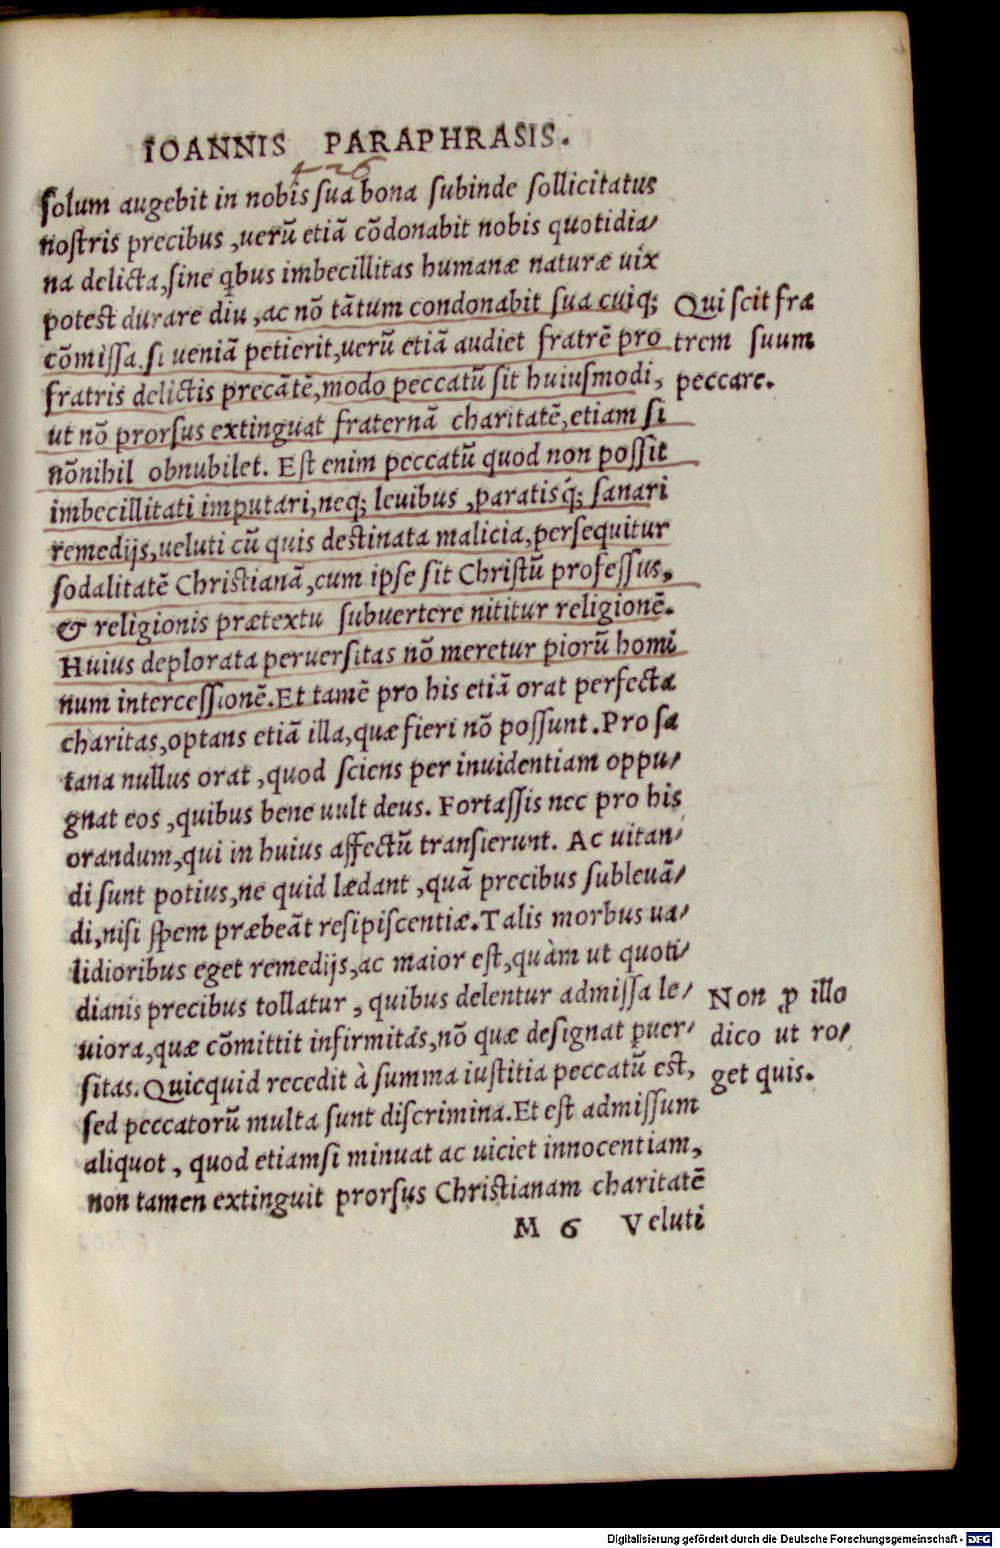 IOANNIS PARAPHRASIS.
426
solum augebit in nobis sua bona subinde sollicitatus
nostris precibus, uerū etiā cōdonabit nobis quotidia-
na delicta, sine qbus imbecillitas humanæ naturæ uix
potest durare diu, ac nō tātum condonabit sua cuiq;
cōmissa, si ueniā petierit, uerū etiā audiet fratrē pro
fratris delictis precātē, modo peccatū sit huiusmodi,
ut nō prorsus extinguat fraternā charitatē, etiam si
nōnihil obnubilet. Est enim peccatū quod non possit
imbecillitati imputari, neq; leuibus, paratisq́; sanari
remedijs, ueluti cū quis destinata malicia, persequitur
sodalitatē Christianā, cum ipse sit Christū professus,
& religionis prætextu subuertere nititur religionē.
Huius deplorata peruersitas nō meretur piorū homi
num intercessionē. Et tamē pro his etiā orat perfecta
charitas, optans etiā illa, quæ fieri nō possunt. Pro sa
tana nullus orat, quod sciens per inuidentiam oppu-
gnat eos, quibus bene uult deus. Fortassis nec pro his
orandum, qui in huius affectū transierunt. Ac uitan-
di sunt potius, ne quid lædant, quā precibus subleuā-
di, nisi spem præbeāt resipiscentiæ. Talis morbus ua-
lidioribus eget remedijs, ac maior est, quàm ut quoti-
dianis precibus tollatur, quibus delentur admissa le-
uiora, quæ cōmittit infirmitas, nō quæ designat ꝑuer-
sitas. Quicquid recedit à summa iustitia peccatū est,
sed peccatorū multa sunt discrimina. Et est admissum
aliquot, quod etiamsi minuat ac uiciet innocentiam,
non tamen extinguit prorsus Christianam charitatē
M 6 Veluti
Qui scit fra
trem suum
peccare.
Non ꝓ illo
dico ut ro-
get quis.
Digitalisierung gefördert durch die Deutsche Forschungsgemeinschaft - DFG